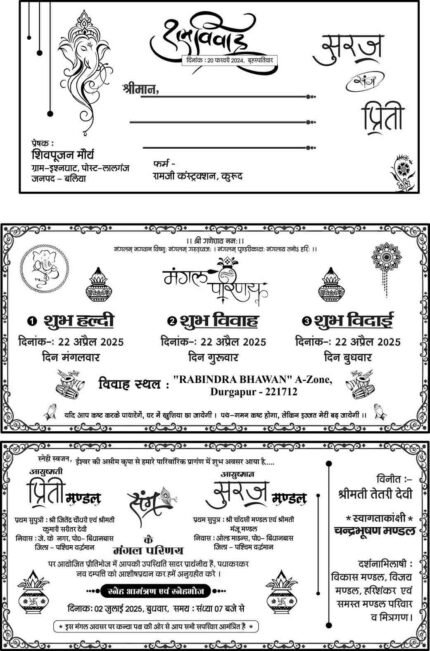 शुभ विवाह
दिनांक : 20 फरवरी 2024, बृहस्पतिवार
सुरज
संग
प्रिती
श्रीमान,
प्रेषक :
शिवपूजन मौर्य
ग्राम-इश्नघाट, पोस्ट-लालगंज
जनपद - बलिया
फर्म -
रामजी कंस्ट्रक्शन, कुरूद
।। श्री गणेशाय नमः ।।
मंगलम् भगवान विष्णुः मंगलम् गरुड़ध्वजः । मंगलम् पुण्डरीकाक्षः मंगलाय तनोः हरिः ।।
मंगल परिणय
1 शुभ हल्दी
दिनांक-: 22 अप्रैल 2025
दिन मंगलवार
2 शुभ विवाह
दिनांक-: 22 अप्रैल 2025
दिन गुरूवार
3 शुभ विदाई
दिनांक-: 22 अप्रैल 2025
दिन बुधवार
विवाह स्थल : "RABINDRA BHAWAN" A-Zone,
Durgapur - 221712
यदि आप कष्ट करके पधारेगें, घर में खुशिया छा जायेगी । पथे-गमन कष्ट होगा, लेकिन इज्जत मेरी बढ़ जायेगी ।।
स्नेही स्वजन,
ईश्वर की असीम कृपा से हमारे पारिवारिक प्रागंण में शुभ अवसर आया है.....
आयुष्मती
प्रिती मण्डल
संग
आयुष्मान
सुरज मण्डल
प्रथम सुपुत्री : श्री जितेंद्र चौधरी एवं श्रीमती
कुमारी सरीतर देवी
निवास : जे. के. नगर, पो०- बिधानबास
जिला - पश्चिम वर्द्धमान
प्रथम सुपुत्र : श्री चांदसी मण्डल एवं श्रीमती
मंजू मण्डल
निवास : ओल्ड माइन्स, पो०- बिधानबास
जिला - पश्चिम वर्द्धमान
के
मंगल परिणय
पर आयोजित प्रीतिभोज में आपकी उपस्थिति सादर प्रार्थनीय है, पधारकर
नव दम्पति को आशीषप्रदान कर हमें अनुग्रहीत करे ।
स्नेह आमंत्रण एवं स्नेहभोज
दिनांक: 02 जुलाई 2025, बुधवार, समय : संध्या 07 बजे से
* इस मंगल अवसर पर कन्या पक्ष की ओर से आप सभी सपरिवार आमंत्रित है *
विनीत :-
श्रीमती तेतरी देवी
* स्वागताकांक्षी *
चन्द्रभूषण मण्डल
दर्शनाभिलाषी :
विकास मण्डल, विजय
मण्डल, हरिशंकर एवं
समस्त मण्डल परिवार
व मित्रगण ।